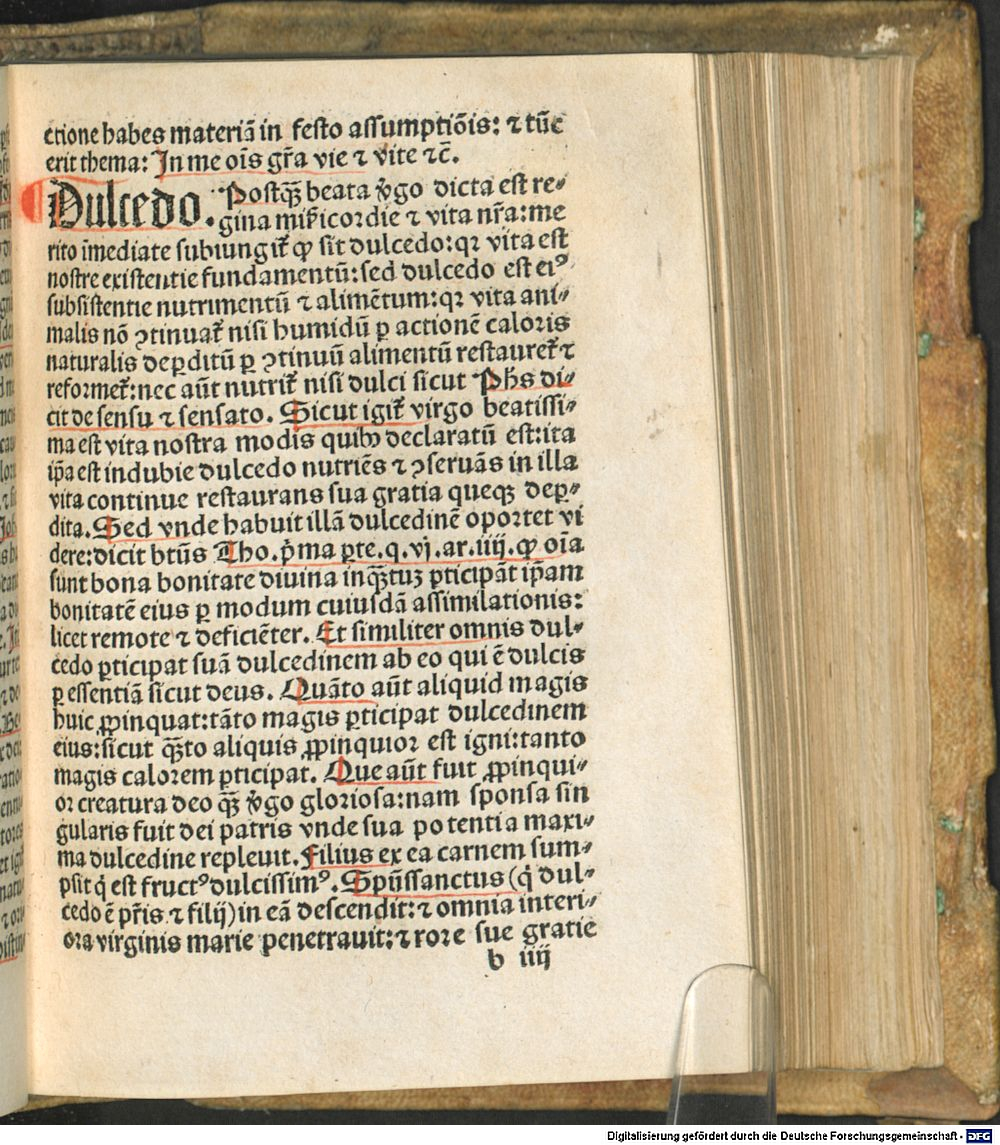 ctione habes materiā in festo assumptiōis: ⁊ tūc
erit thema: In me oīs gr̄a vie ⁊ vite ⁊c̄.
Dulcedo. Postqꝫ̄ beata v̓go dicta est re⸗
gina mīẜicordie ⁊ vita nr̄a: me
rito īmediate subiungit᷑ ꝙ sit dulcedo: qꝛ vita est
nostre existentie fundamentū: sed dulcedo est eiꝰ
subsistentie nutrimentū ⁊ alimētum: qꝛ vita ani⸗
malis nō ↄtinuat᷑ nisi humidū ꝑ actionē caloris
naturalis deꝑditū ꝑ ↄtinuū alimentū restauret᷑ ⁊
reformet᷑: nec aūt nutrit᷑ nisi dulci sicut Ph̄s di⸗
cit de sensu ⁊ sensato. Sicut igit᷑ virgo beatissi⸗
ma est vita nostra modis quibꝫ declaratū est: ita
ip̄a est indubie dulcedo nutriēs ⁊ ↄseruās in illa
vita continue restaurans sua gratia queqꝫ deꝑ⸗
dita. Sed vnde habuit illā dulcedinē oportet vi
dere: dicit btūs Tho. p̓ma ꝑte. q. vj. ar. iiij. ꝙ oīa
sunt bona bonitate diuina inqꝫ̄tuꝫ ꝑticipāt ip̄am
bonitatē eius ꝑ modum cuiusdā assimilationis:
licet remote ⁊ deficiēter. Et similiter omnis dul⸗
cedo ꝑticipat suā dulcedinem ab eo qui ē dulcis
ꝑ essentiā sicut deus. Quāto aūt aliquid magis
huic ꝓpinquat: tāto magis ꝑticipat dulcedinem
eius: sicut qꝫ̄to aliquis ꝓpinquior est igni: tanto
magis calorem ꝑticipat. Que aūt fuit ꝓpinqui⸗
or creatura deo qꝫ̄ v̓go gloriosa: nam sponsa sin
gularis fuit dei patris vnde sua potentia maxi⸗
ma dulcedine repleuit. Filius ex ea carnem sum⸗
psit q̓ est fructꝰ dulcissimꝰ. Spūssanctus (q̓ dul⸗
cedo ē pr̄is ⁊ filij) in eā descendit: ⁊ omnia interi⸗
ora virginis marie penetrauit: ⁊ rore sue gratie
b iiij
Digitalisierung gefördert durch die Deutsche Forschungsgemeinschaft - DFG